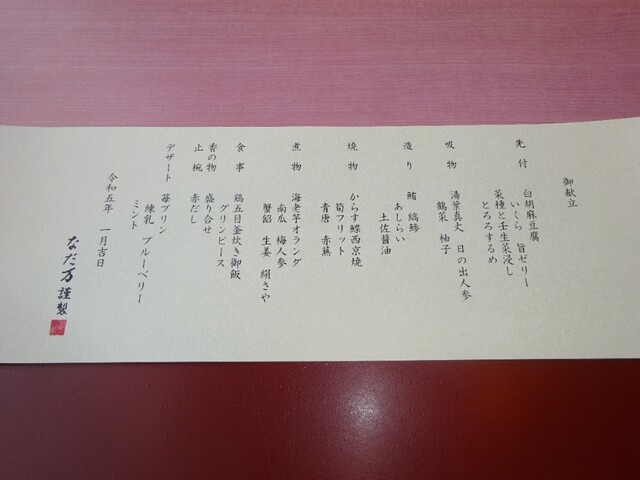 御献立
先付 白胡麻豆腐
いくら 旨ゼリー
菜種と壬生菜浸し
とろろするめ
吸物 湯葉真丈 日の出人参
鶴菜 柚子
造り 鮪 縞鯵
あしらい
土佐醤油
焼物 からす鰈西京焼
筍フリット
青唐 赤蕪
煮物 海老芋オランダ
南瓜 梅人参
蟹餡 生姜 絹さや
食事 鶏五目釜炊き御飯
グリンピース
香の物 盛り合せ
止椀 赤だし
デザート 苺プリン
練乳 ブルーベリー
ミント
令和五年 一月吉日
なだ万 謹製